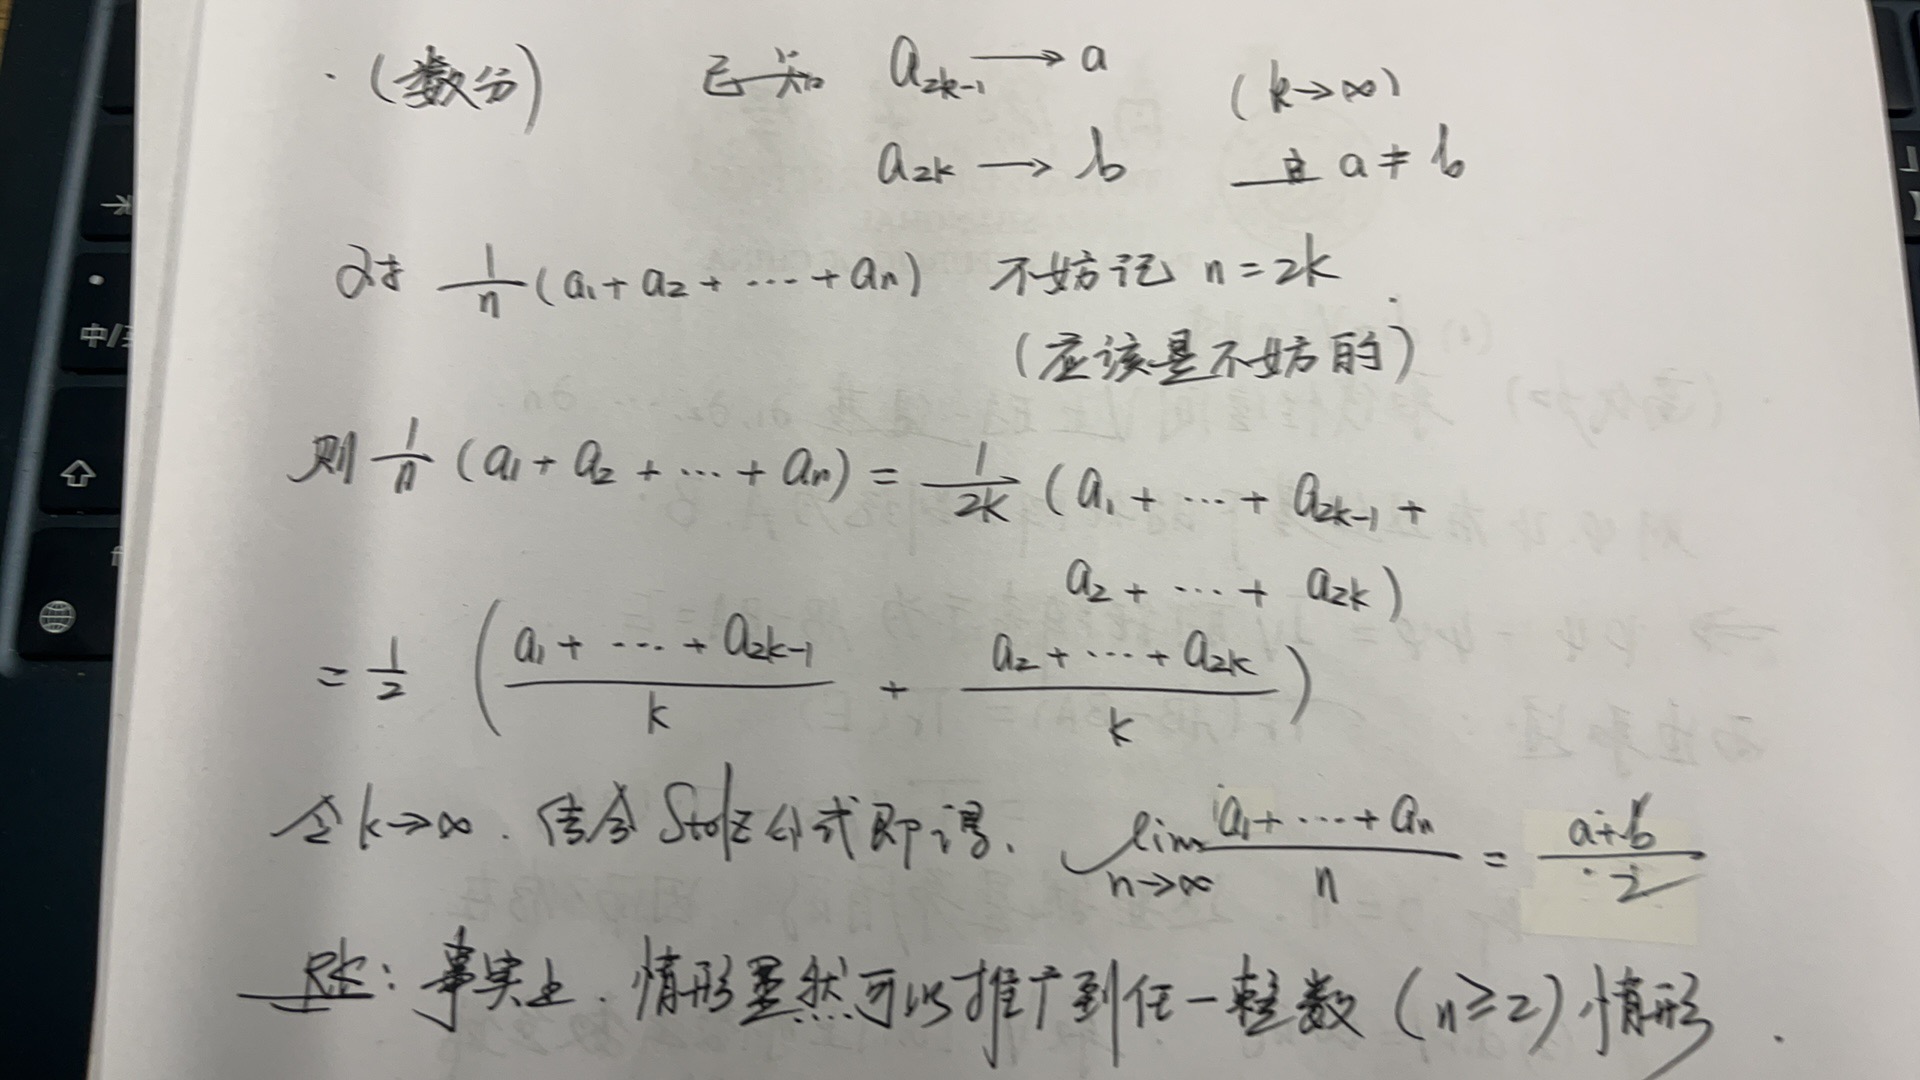 ·(数分) 已知 a₂ₖ₋₁ → a (k→∞)
a₂ₖ → b 且 a≠b
对 1/n (a₁+a₂+···+aₙ) 不妨记 n=2k
(应该是不妨的)
则 1/n (a₁+a₂+···+aₙ) = 1/2k (a₁+···+a₂ₖ₋₁+
a₂+···+a₂ₖ)
= 1/2 ( (a₁+···+a₂ₖ₋₁)/k + (a₂+···+a₂ₖ)/k )
令k→∞. 结合Stolz公式即得、 lim n→∞ (a₁+···+aₙ)/n = (a+b)/2
RK: 事实上. 情形显然可以推广到任一整数 (n≥2) 情形.
中/